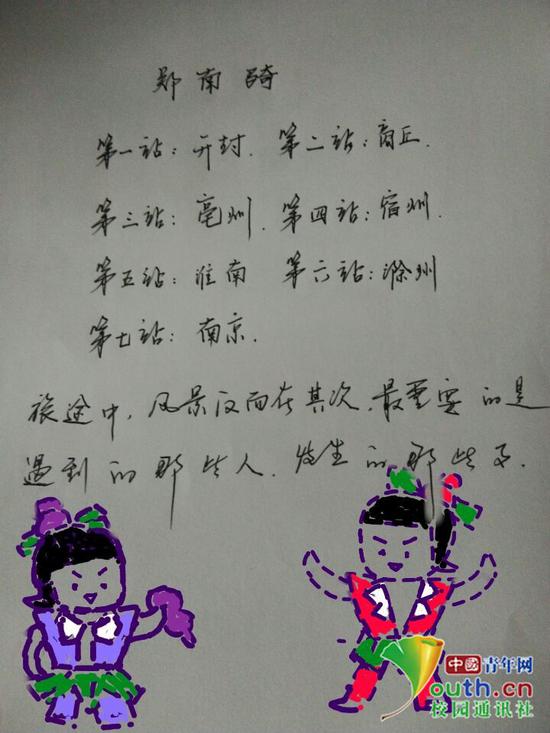 郑南骑
第一站：开封. 第二站：商丘.
第三站：亳州. 第四站：宿州.
第五站：淮南 第六站：滁州
第七站：南京.
旅途中，风景反而在其次.最重要的是
遇到的那些人.发生的那些事.
中國青年网
outh.cn
校园通讯社